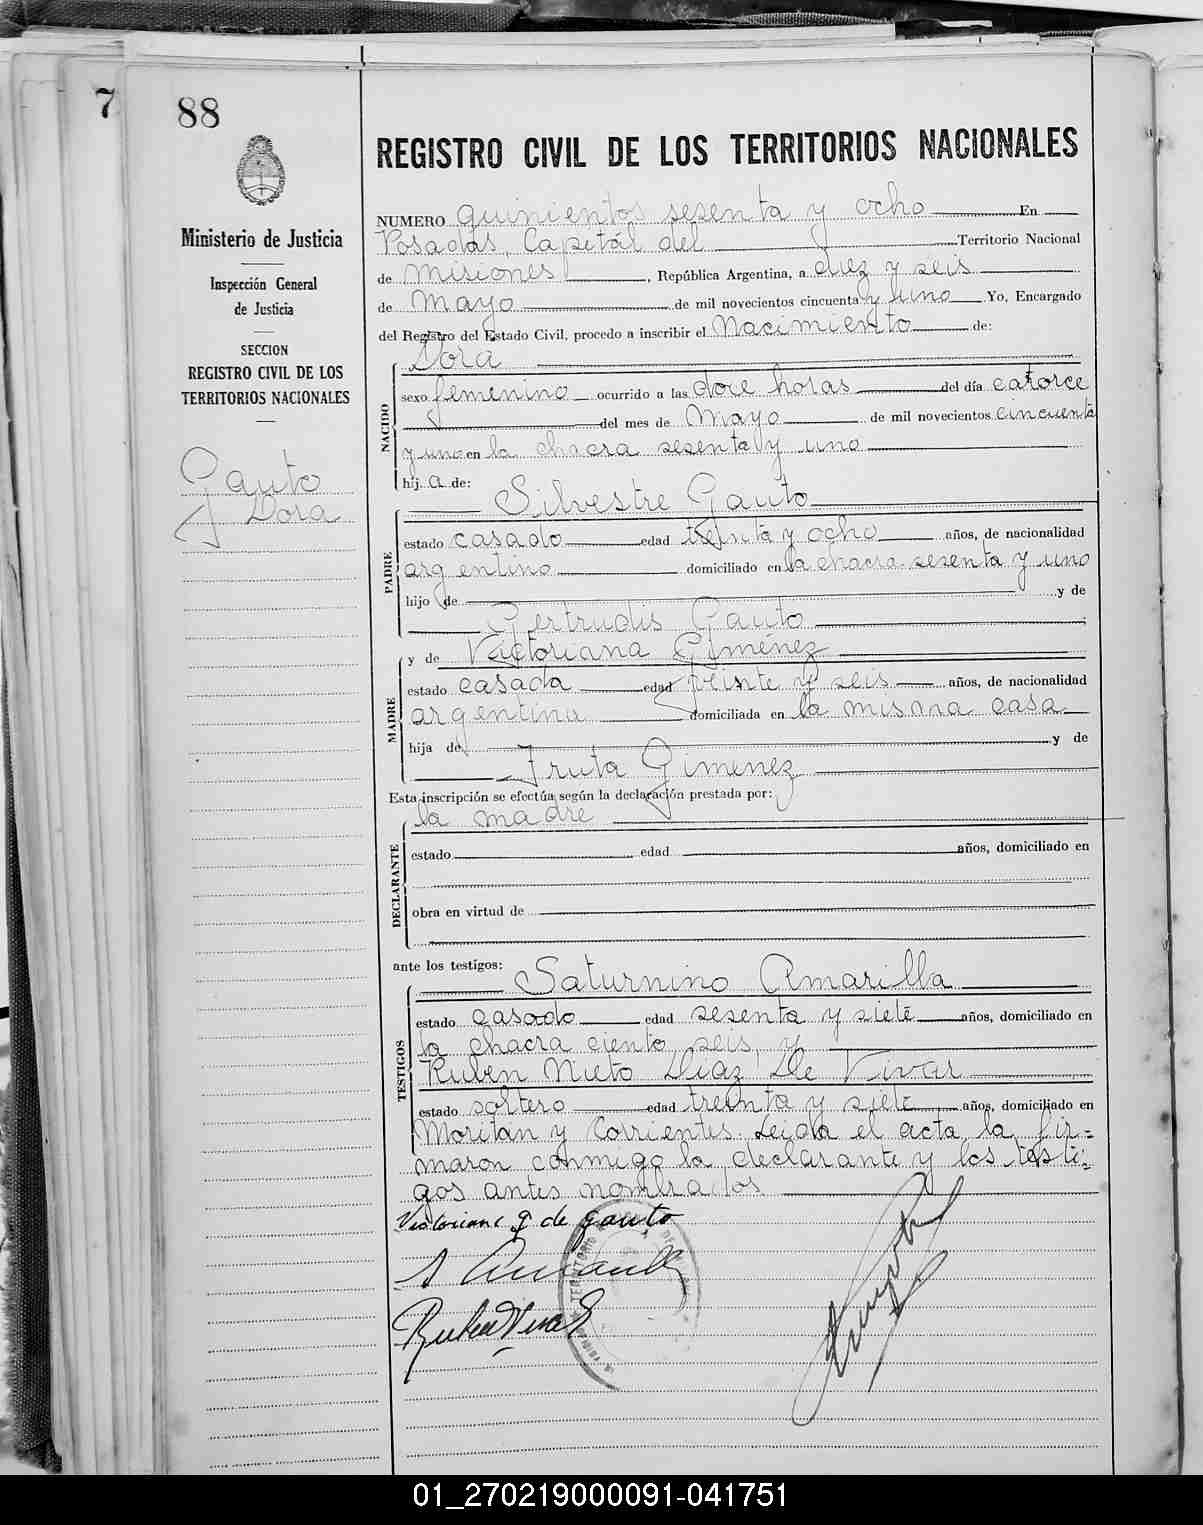 7
88
Ministerio de Justicia
Inspección General
de Justicia
SECCION
REGISTRO CIVIL DE LOS
TERRITORIOS NACIONALES
Gauto
Dora
REGISTRO CIVIL DE LOS TERRITORIOS NACIONALES
NUMERO quinientos sesenta y ocho En
Posadas, Capitál del Territorio Nacional
de Misiones, República Argentina, a diez y seis
de Mayo de mil novecientos cincuenta y uno Yo, Encargado
del Registro del Estado Civil, procedo a inscribir el Nacimiento de:
NACIDO
Dora
sexo femenino ocurrido a las doce horas del día catorce
del mes de Mayo de mil novecientos cincuenta
y uno en la chacra sesenta y uno
hij a de:
PADRE
Silvestre Gauto
estado casado edad treinta y ocho años, de nacionalidad
argentino domiciliado en la chacra sesenta y uno
hijo de y de
Gertrudis Gauto
MADRE
y de Victoriana Giménez
estado casada edad veinte y seis años, de nacionalidad
argentina domiciliada en la misma casa
hija de y de
Fruta Gimenez
Esta inscripción se efectúa según la declaración prestada por:
DECLARANTE
la madre
estado edad años, domiciliado en
obra en virtud de
ante los testigos:
TESTIGOS
Saturnino Amarilla
estado casado edad sesenta y siete años, domiciliado en
la chacra ciento seis, y
Ruben Nieto Diaz De Vivar
estado soltero edad treinta y siete años, domiciliado en
Moritan y Corrientes. Leida el acta, la fir=
maron conmigo la declarante y los testi=
gos antes nombrados
Victoriana g de gauto
S Amarilla
Ruben Vivar
01_270219000091-041751